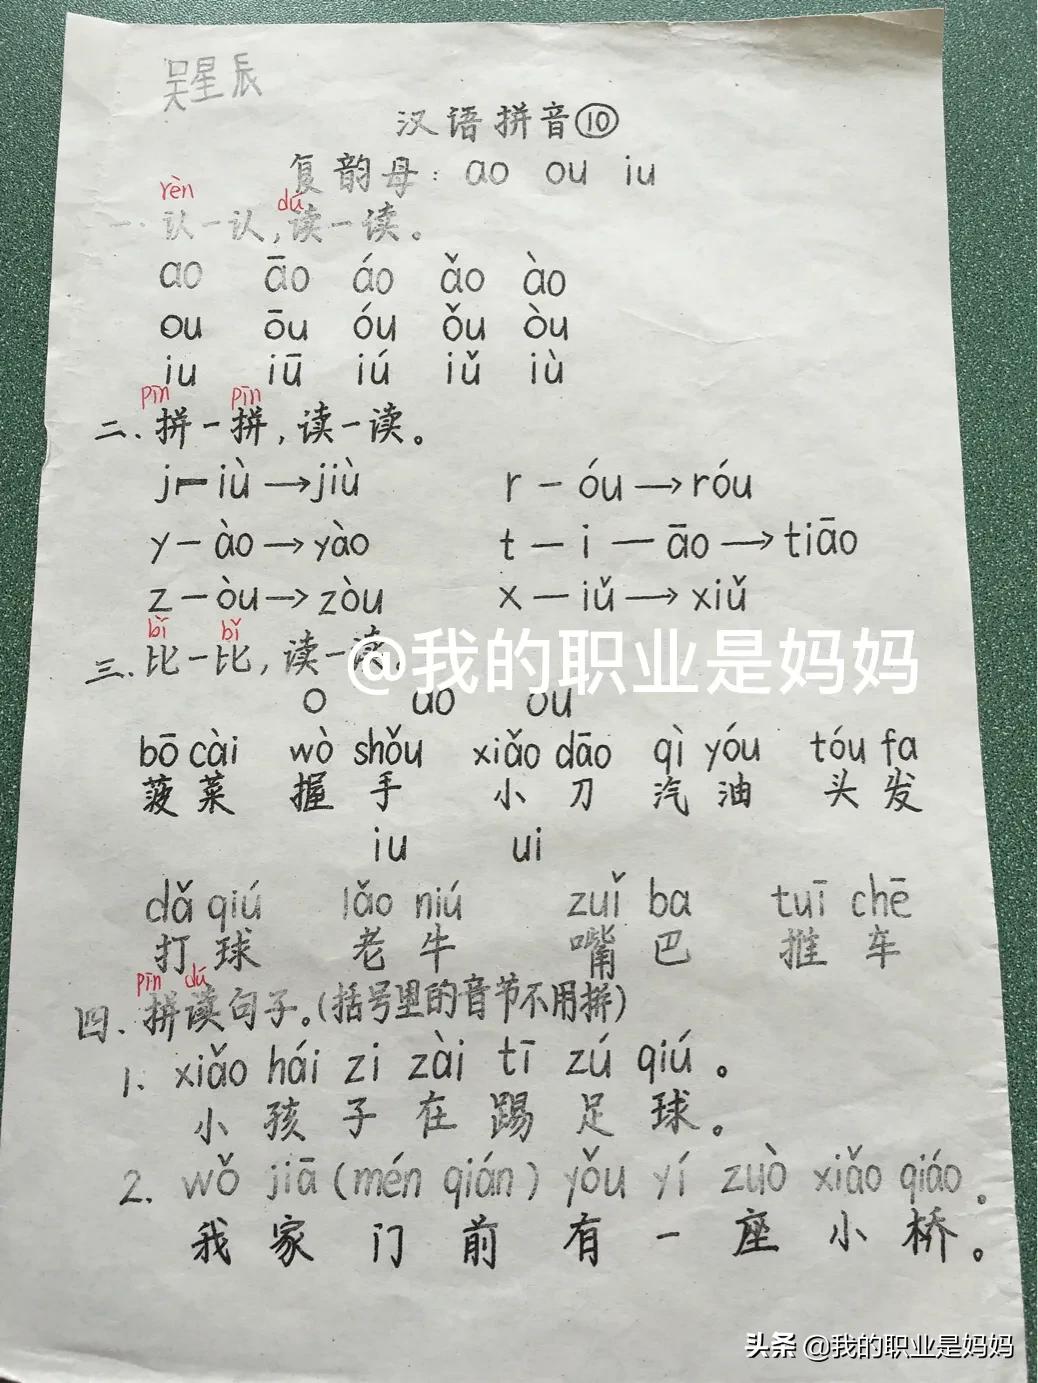 吴星辰
汉语拼音⑩
复韵母：ao ou iu
rèn dú
一.认一认,读一读。
ao āo áo ǎo ào
ou ōu óu ǒu òu
iu iū iú iǔ iù
pīn pīn
二、拼一拼,读一读。
j—iù→jiù r—óu→róu
y—ào→yào t—i—āo→tiāo
z—òu→zòu x—iǔ→xiǔ
bǐ bǐ
三、比一比,读一读。
@我的职业是妈妈
o ao ou
bō cài wò shǒu xiǎo dāo qì yóu tóu fa
菠菜 握手 小刀 汽油 头发
iu ui
dǎ qiú lǎo niú zuǐ ba tuī chē
打球 老牛 嘴巴 推车
pīn dú
四、拼读句子。(括号里的音节不用拼)
1. xiǎo hái zi zài tī zú qiú。
小孩子在踢足球。
2. wǒ jiā (mén qián) yǒu yí zuò xiǎo qiáo。
我家门前有一座小桥。
头条 @我的职业是妈妈